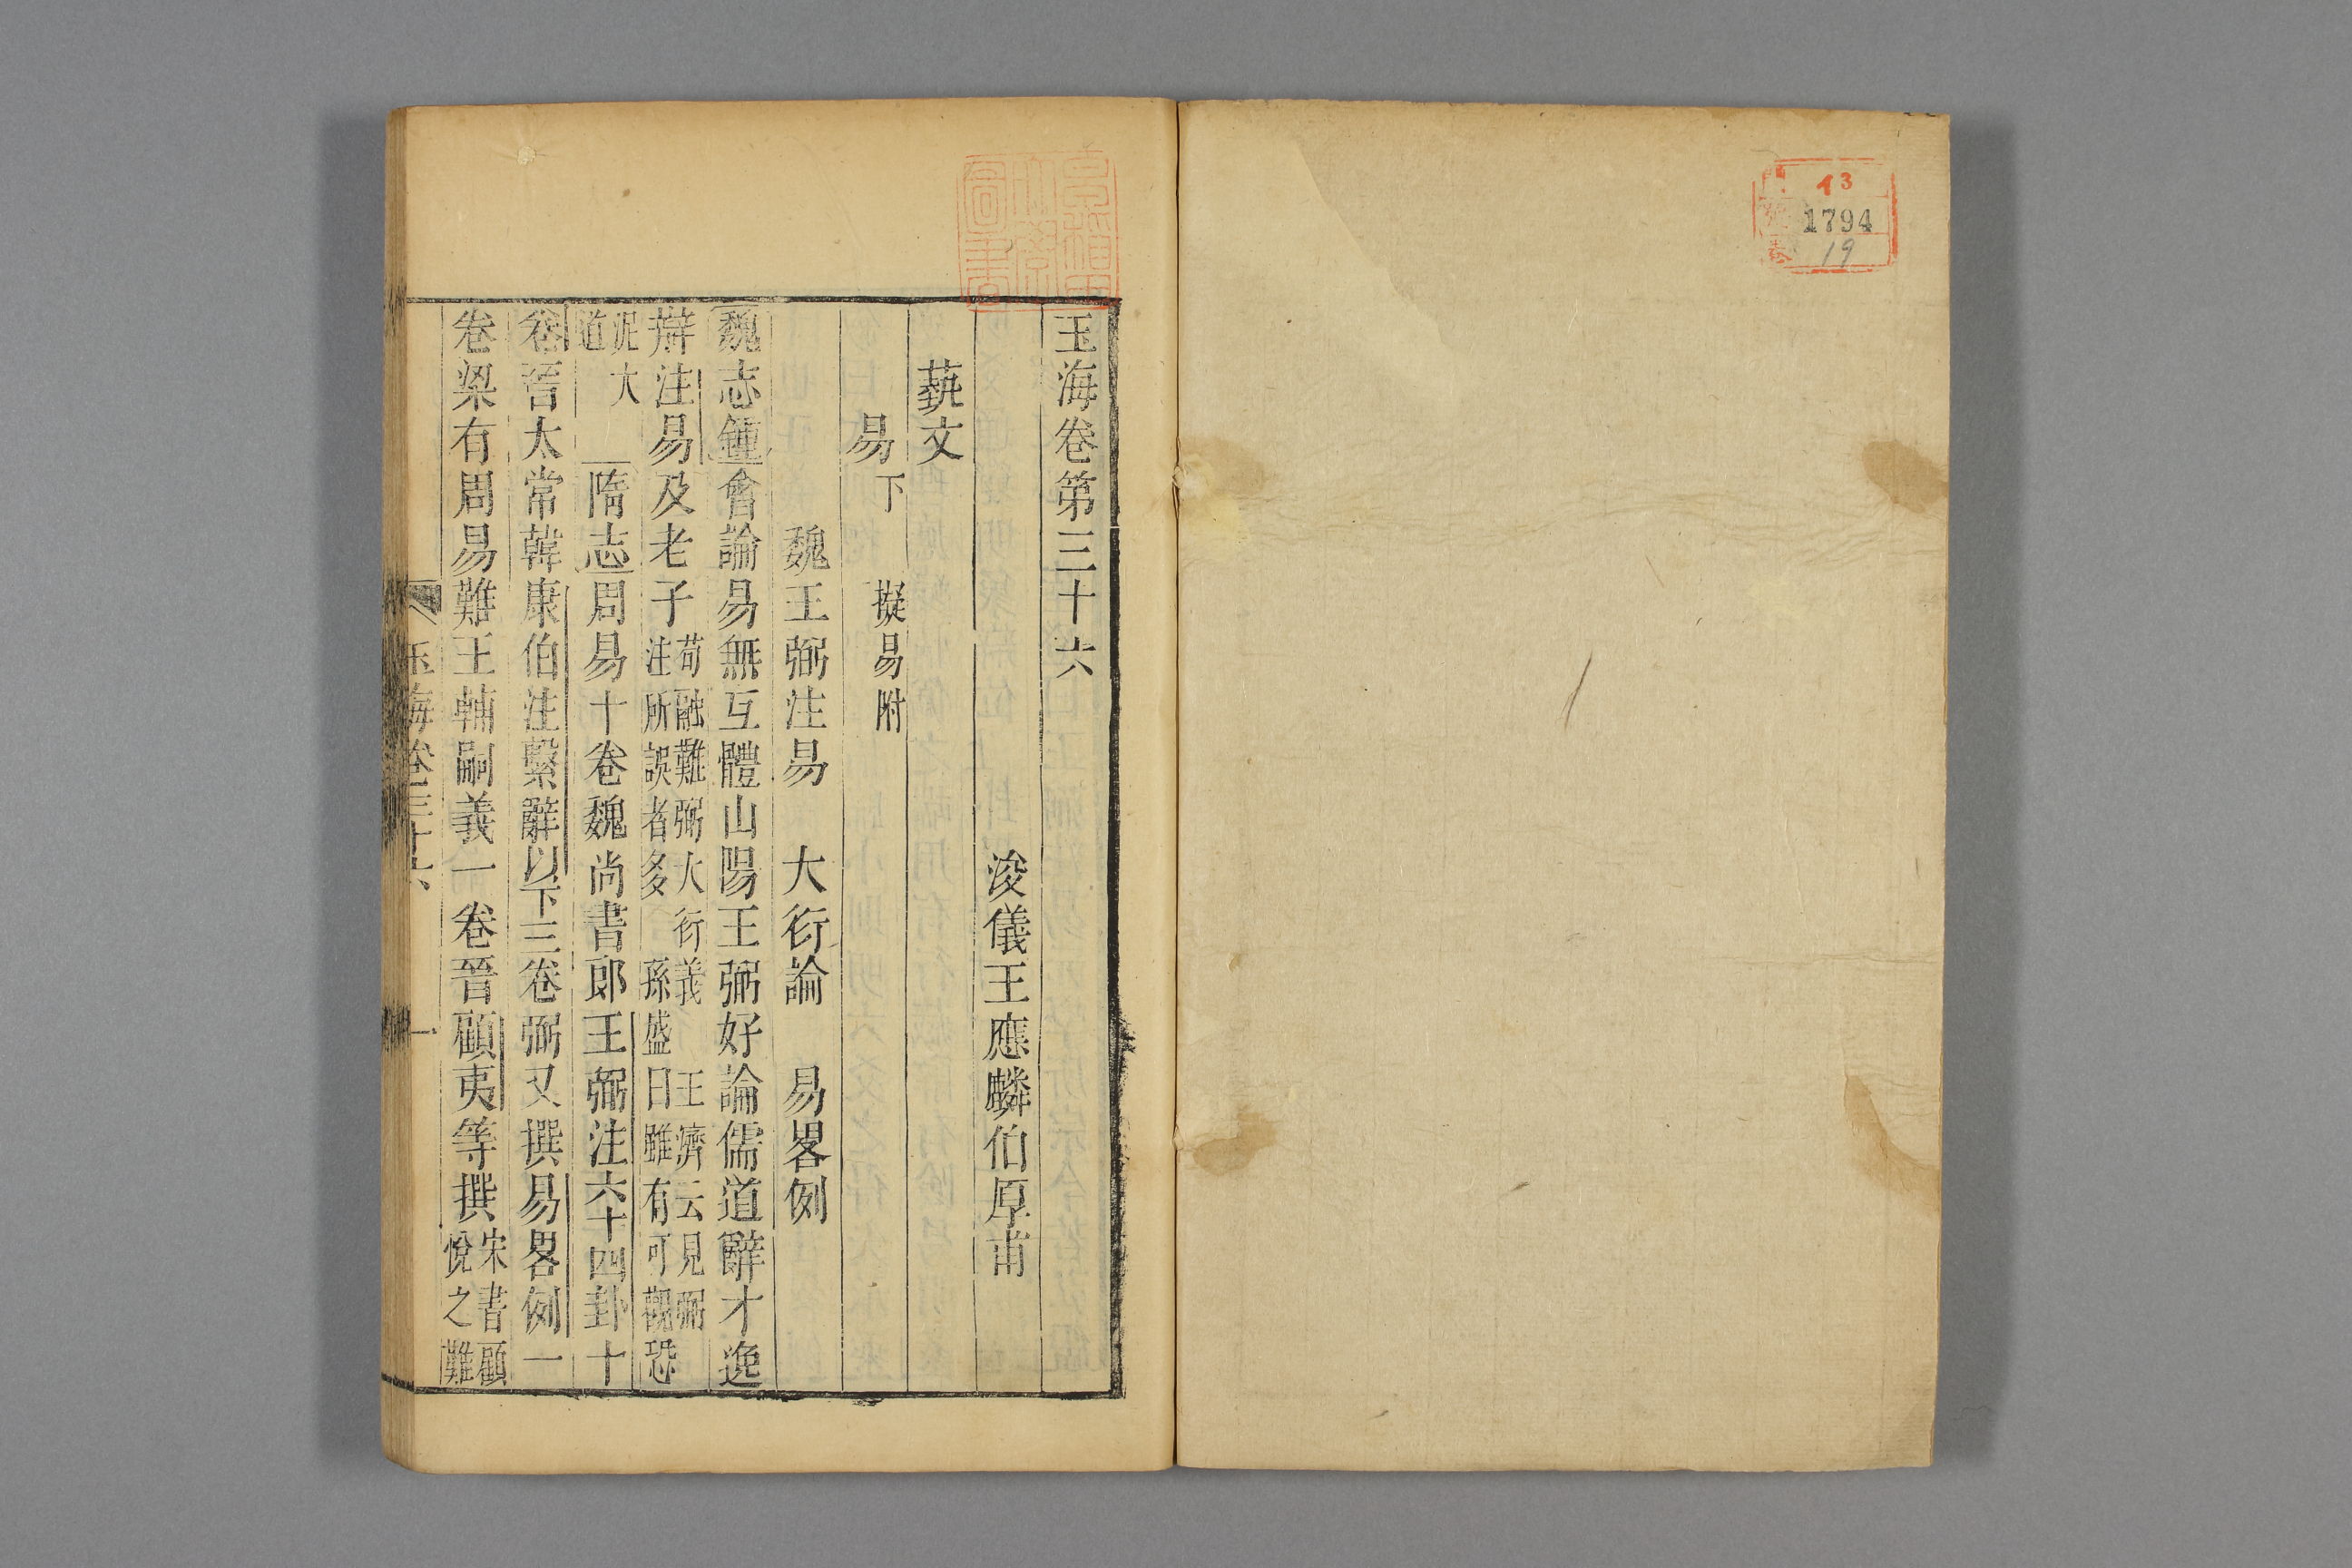 13
1794
19
玉海卷第三十六
浚儀王應麟伯厚甫
藝文
易下 擬易附
魏王弼注易 大衍論 易畧例
魏志鍾會論易無互體山陽王弼好論儒道辭才逸
辯注易及老子荀融難弼大衍義 王濟云見弼
注所誤者多 孫盛曰雖有可觀恐
泥大
道
隋志周易十卷魏尚書郎王弼注六十四卦十
卷晉太常韓康伯注繫辭以下三卷弼又撰易畧例一
卷梁有周易難王輔嗣義一卷晉顧夷等撰宋書顧
悅之難
玉海卷三十六 一